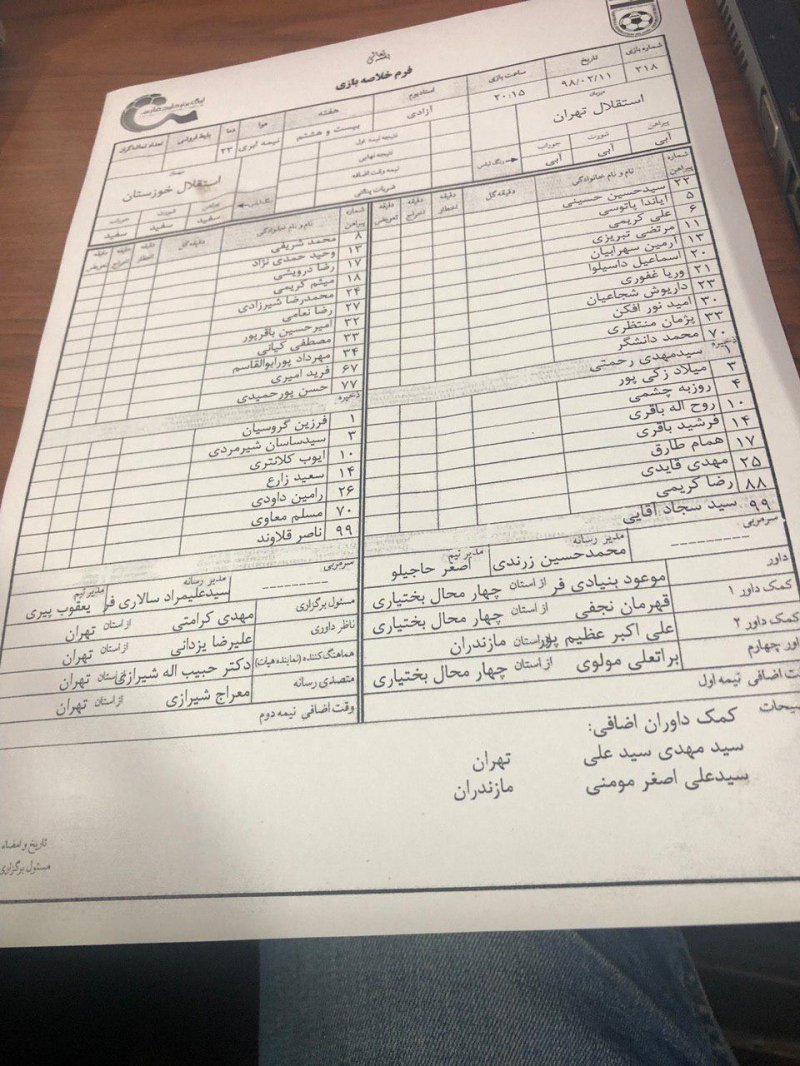 بسمه تعالی
فرم خلاصه بازی
لیگ برتر خلیج فارس
شماره بازی
۲۱۸
تاریخ
۹۸/۰۲/۱۱
ساعت بازی
۲۰:۱۵
استادیوم
آزادی
هفته
بیست و هشتم
هوا
نیمه ابری
دما
۲۳
تعداد تماشاگران
میزبان
استقلال تهران
پیراهن
آبی
شورت
آبی
جوراب
آبی
رنگ لباس
نتیجه نیمه اول
نتیجه نهایی
نیمه وقت اضافه
ضربات پنالتی
میهمان
استقلال خوزستان
سفید
شورت
سفید
جوراب
سفید
شماره پیراهن
نام و نام خانوادگی
دقیقه گل
دقیقه اخطار
دقیقه اخراج
دقیقه تعویض
۲۲ سیدحسین حسینی
۵ آیاندا پاتوسی
۶ علی کریمی
۱۱ مرتضی تبریزی
۱۳ آرمین سهرابیان
۲۰ اسماعیل داسیلوا
۲۱ وریا غفوری
۲۳ داریوش شجاعیان
۳۰ امید نور افکن
۳۳ پژمان منتظری
۷۰ محمد دانشگر
ذخیره
۱ سیدمهدی رحمتی
۳ میلاد زکی پور
۴ روزبه چشمی
۱۰ روح اله باقری
۱۴ فرشید باقری
۱۷ همام طارق
۲۵ مهدی قایدی
۸۸ رضا کریمی
۹۹ سید سجاد آقایی
سرمربی
مدیر رسانه
محمدحسین زرندی
مدیر تیم
اصغر حاجیلو
داور
موعود بنیادی فر از استان چهار محال بختیاری
کمک داور ۱
قهرمان نجفی از استان چهار محال بختیاری
کمک داور ۲
علی اکبر عظیم پور از استان مازندران
داور چهارم
براتعلی مولوی از استان چهار محال بختیاری
وقت اضافی نیمه اول
شماره پیراهن
نام و نام خانوادگی
دقیقه گل
دقیقه اخطار
دقیقه اخراج
دقیقه تعویض
۸ محمد شریفی
۱۳ وحید حمدی نژاد
۱۷ رضا درویشی
۱۸ میثم کریمی
۲۴ محمدرضا شیرزادی
۲۷ رضا نعامی
۳۲ امیرحسین باقرپور
۳۳ مصطفی کیانی
۳۴ مهرداد پورابوالقاسم
۶۷ فرید امیری
۷۷ حسن پورحمیدی
ذخیره
۱ فرزین گروسیان
۳ سیدساسان شیرمردی
۱۰ ایوب کلانتری
۱۴ سعید زارع
۲۶ رامین داودی
۷۰ مسلم معاوی
۹۹ ناصر قلاوند
سرمربی
مدیر رسانه
سیدعلیمراد سالاری فر
مدیر تیم
یعقوب پیری
مسئول برگزاری
مهدی کرامتی از استان تهران
ناظر داوری
علیرضا یزدانی از استان تهران
هماهنگ کننده (نماینده هیات)
دکتر حبیب اله شیرازی از استان تهران
متصدی رسانه
معراج شیرازی از استان تهران
وقت اضافی نیمه دوم
کمک داوران اضافی:
سید مهدی سید علی تهران
سیدعلی اصغر مومنی مازندران
تاریخ و امضاء
مسئول برگزاری